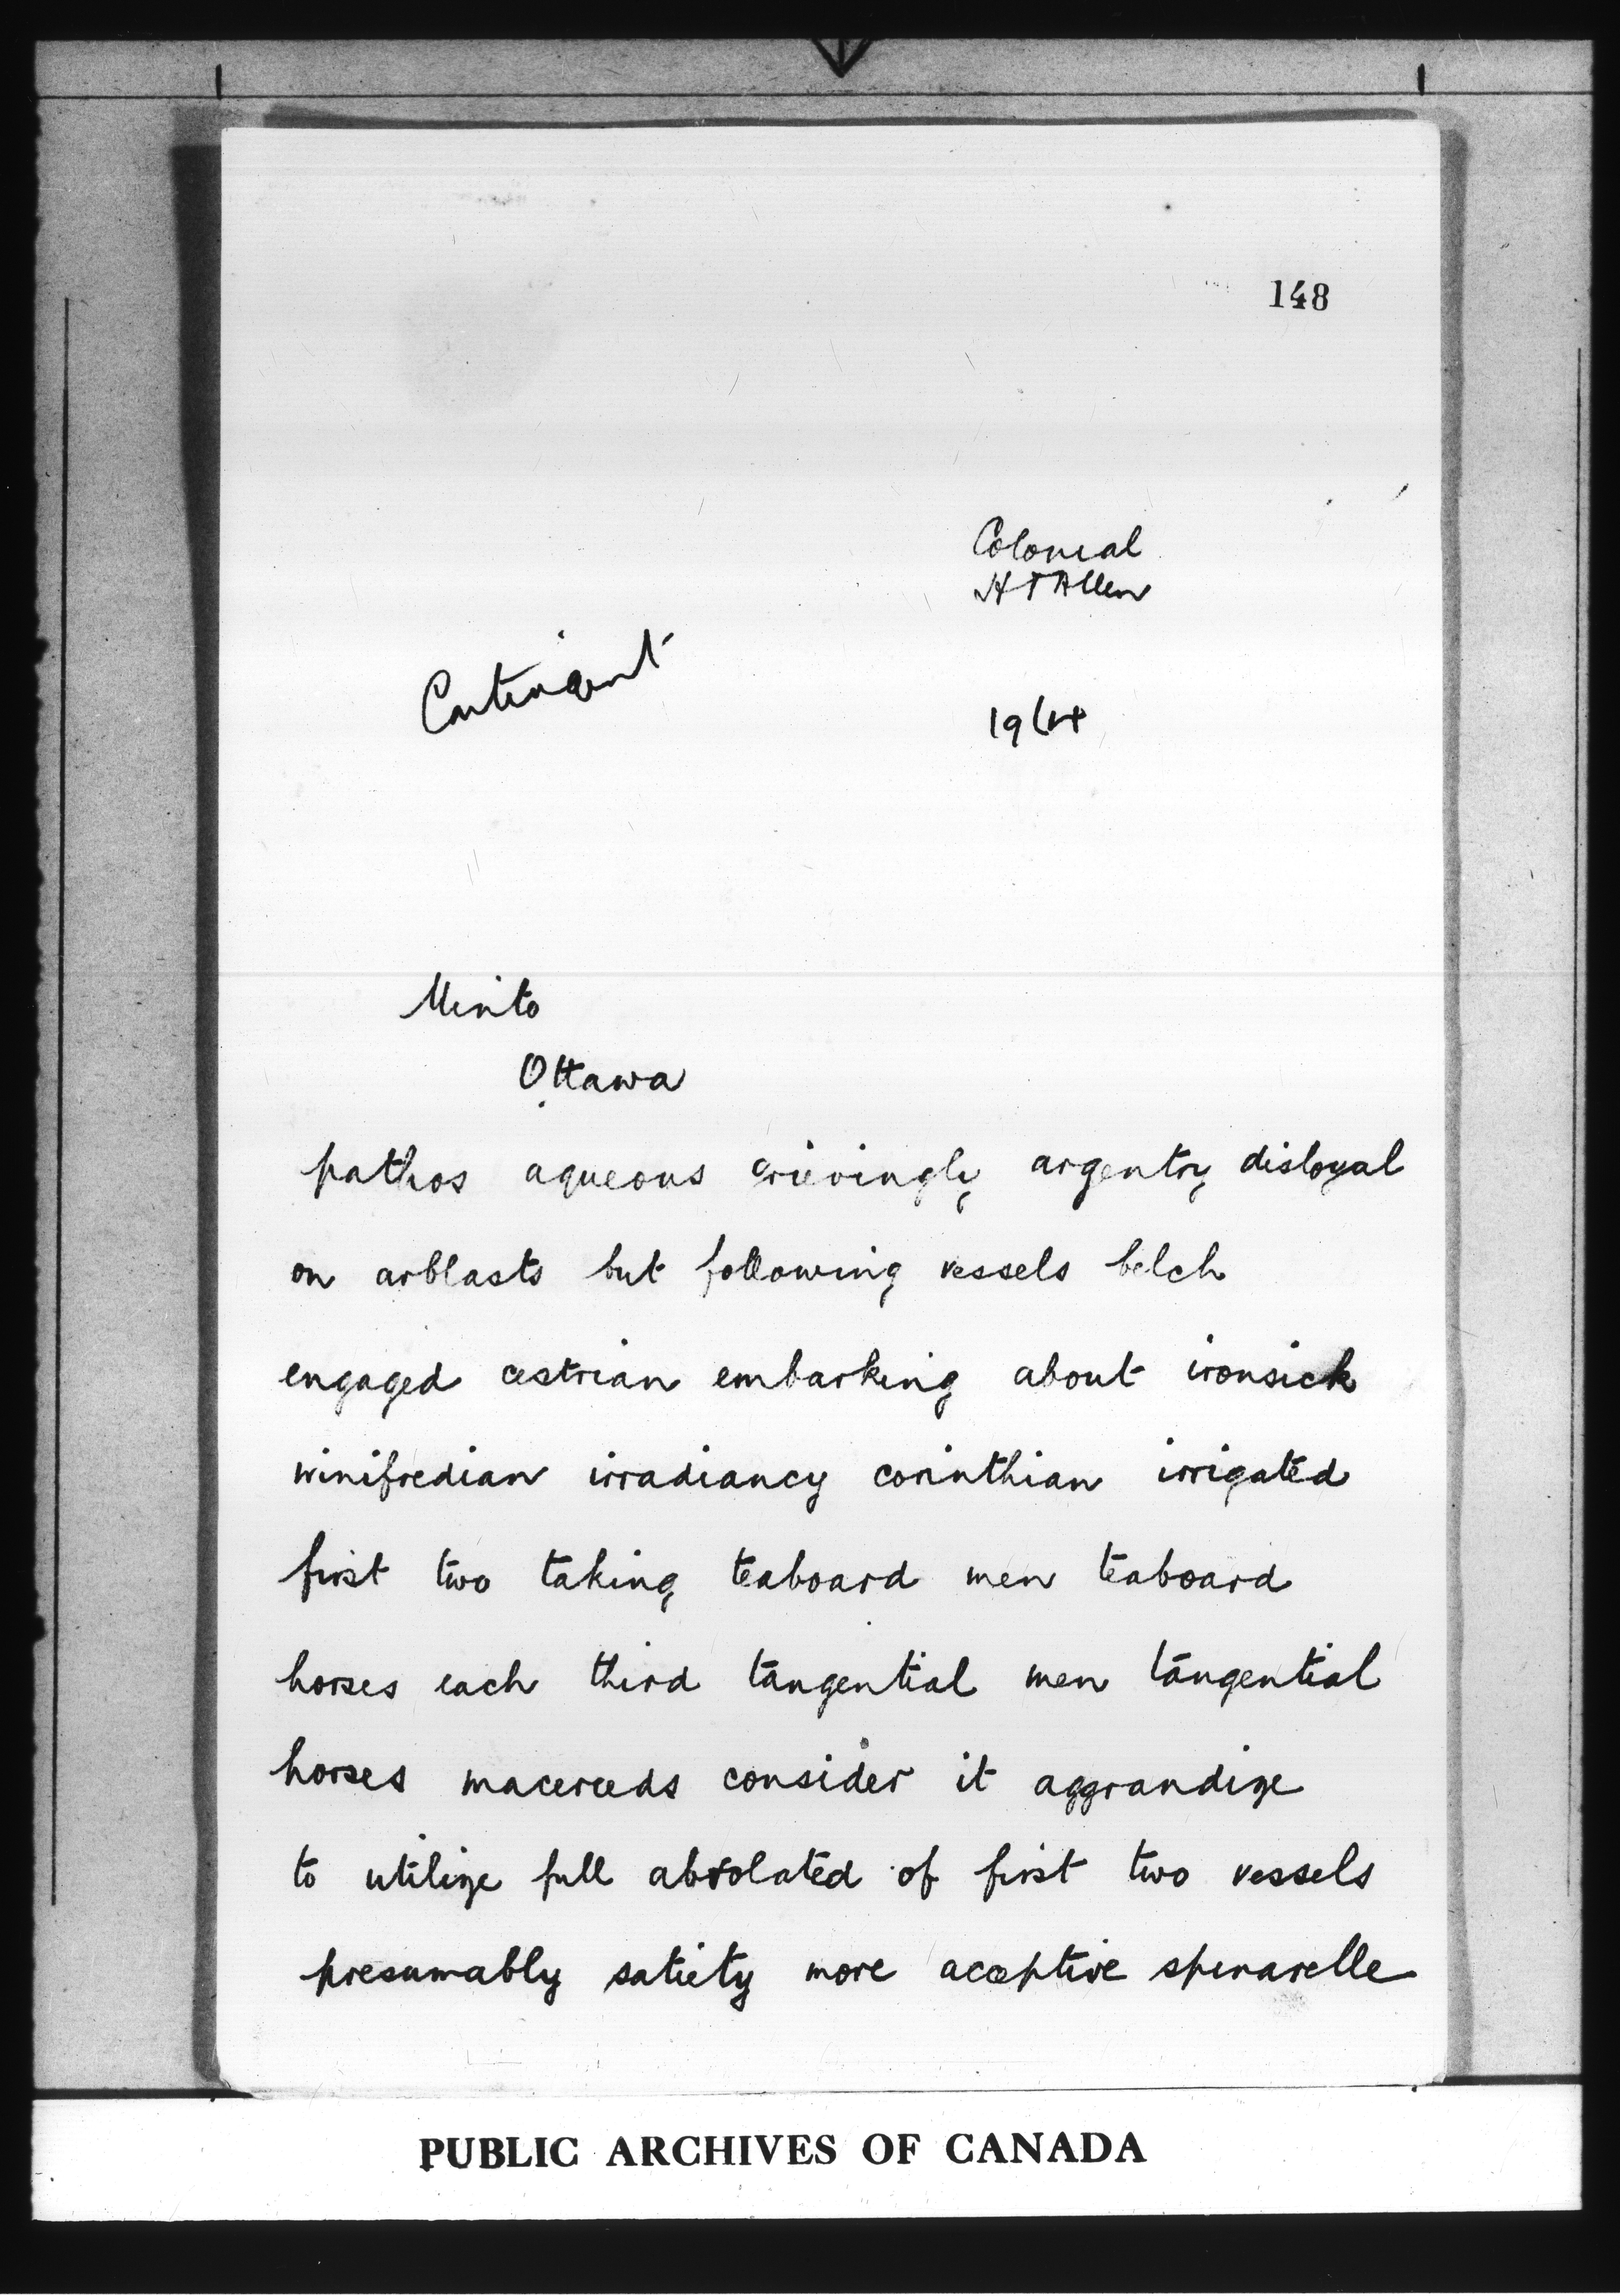 148
Colonial
H T Allen
Contingent
Minto
Ottawa
pathos aqueous grievingly argentry disloyal
on arblasts but following vessels belch
engaged cestrian embarking about ironsick
winifredian irradiancy corinthian irrigated
first two taking teaboard men teaboard
horses each third tangential men tangential
horses macereeds consider it aggrandize
to utilize full absolated of first two vessels
presumably satiety more acceptive
PUBLIC ARCHIVES OF CANADA